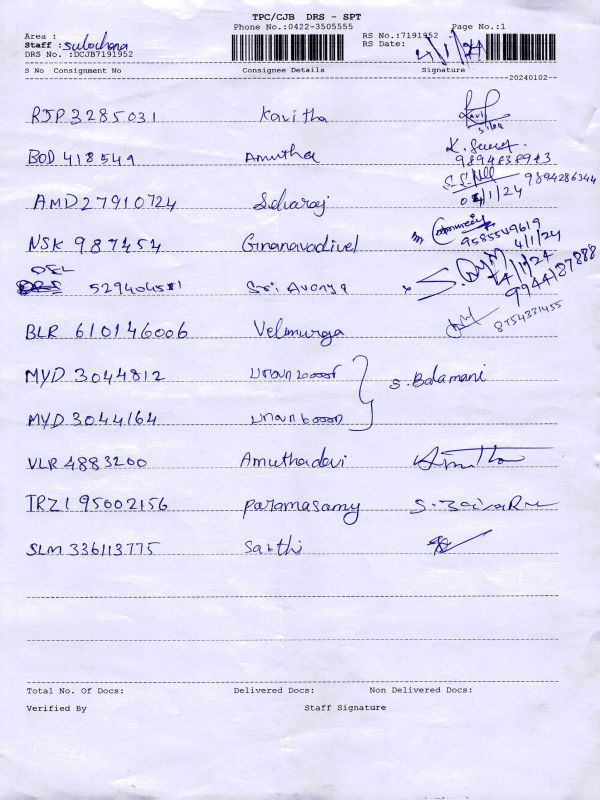 TPC/CJB DRS - SPT
Phone No.:0422-3505555
Area :
Staff : Sulochana
DRS No. :DCJB7191952
RS No.:7191952 Page No.:1
RS Date: 4/1/24
S No Consignment No Consignee Details Signature
20240102
RJP 3285031 Kavitha
BOD 418549 Amutha 9894838943
AMD 27910724 /1/24 9894286344
NSK 987454 Gnanavadivel 9585549619 4/1/24
DEL 529404581 Sri Avanya 4/1/24 9944187888
BLR 610146006 Velmurga 8754331455
MYD 3044812 S. Balamani
MYD 3044164
VLR 4883200 Amuthadevi
TRZ1 95002156 Paramasamy
SLM 336113775 Sakthi
Total No. Of Docs: Delivered Docs: Non Delivered Docs:
Verified By Staff Signature